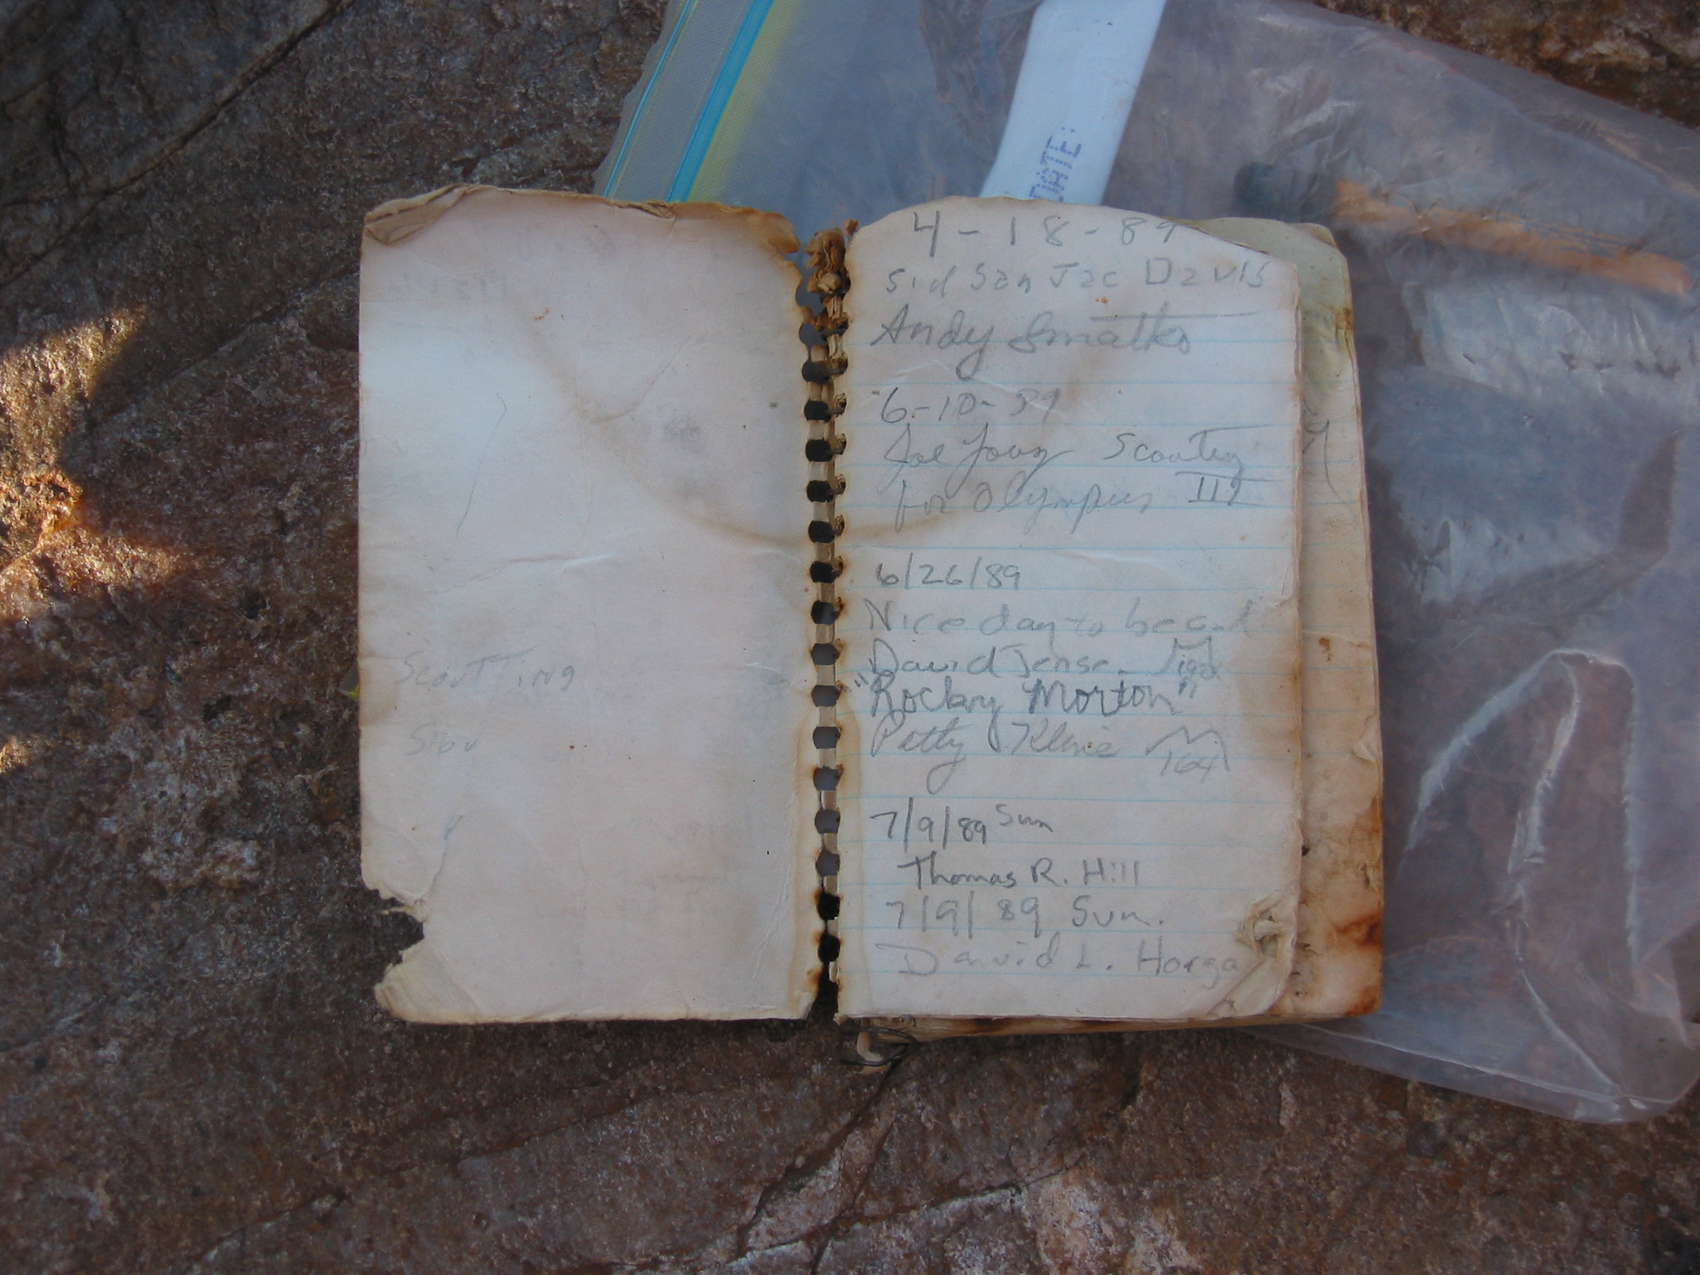 DATE:
Scouting
4-18-89
Sid San Jac Davis
Andy Smatko
6-10-89
Joe Young Scouting
for Olympus III
6/26/89
Nice day to be out
David Jensen
"Rocky Morton"
Patty Kline
7/9/89 Sun
Thomas R. Hill
7/9/89 Sun.
David L. Horga